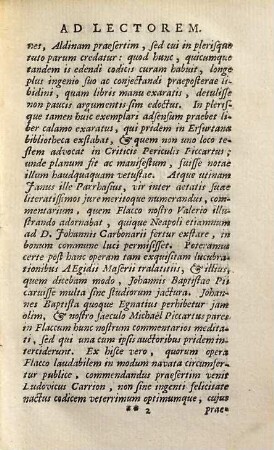 AD LECTOREM.
nes, Aldinam praesertim, sed cui in plerisque
tuto parum credatur: quod hunc, quicumque
tandem is edendi codicis curam habuit, longe
plus ingenio suo ac conjectandi praeposterae li-
bidini, quam libris manu exaratis, detulisse
non paucis argumentis sim edoctus. In pleris-
que tamen huic exemplari adsensum praebet li-
ber calamo exaratus, qui pridem in Erfurtana
bibliotheca exstabat, & quem non uno loco te-
stem advocat in Criticis Periculis Piccartus;
unde planum fit ac manifestum, fuisse notae
illum haudquaquam vetustae. Atque utinam
Janus ille Parrhasius, vir inter aetatis suae
literatissimos jure meritoque numerandus, com-
mentarium, quem Flacco nostro Valerio illu-
strando adornabat, quique Neapoli etiamnum
ad D. Johannis Carbonarii fertur exstare, in
bonum commune luci permisisset. Poteramus
certe post hanc operam tam exquisitam lucub-
rationibus AEgidii Maserii tralatitiis, & illius,
quem dicebam modo, Johannis Baptistae Pii
caruisse multa sine studiorum jactura. Johan-
nes Baptista quoque Egnatius perhibetur jam
olim, & nostro saeculo Michaël Piccartus pares
in Flaccum hunc nostrum commentarios medita-
ti, sed qui una cum ipsis auctoribus pridem in-
terciderunt. Ex hisce vero, quorum opera
Flacco laudabilem in modum navata circumfer-
tur publice, commendandus praesertim venit
Ludovicus Carrion, non sine ingenti felicitate
nactus codicem veterrimum optimumque, cujus
** 2 prae-